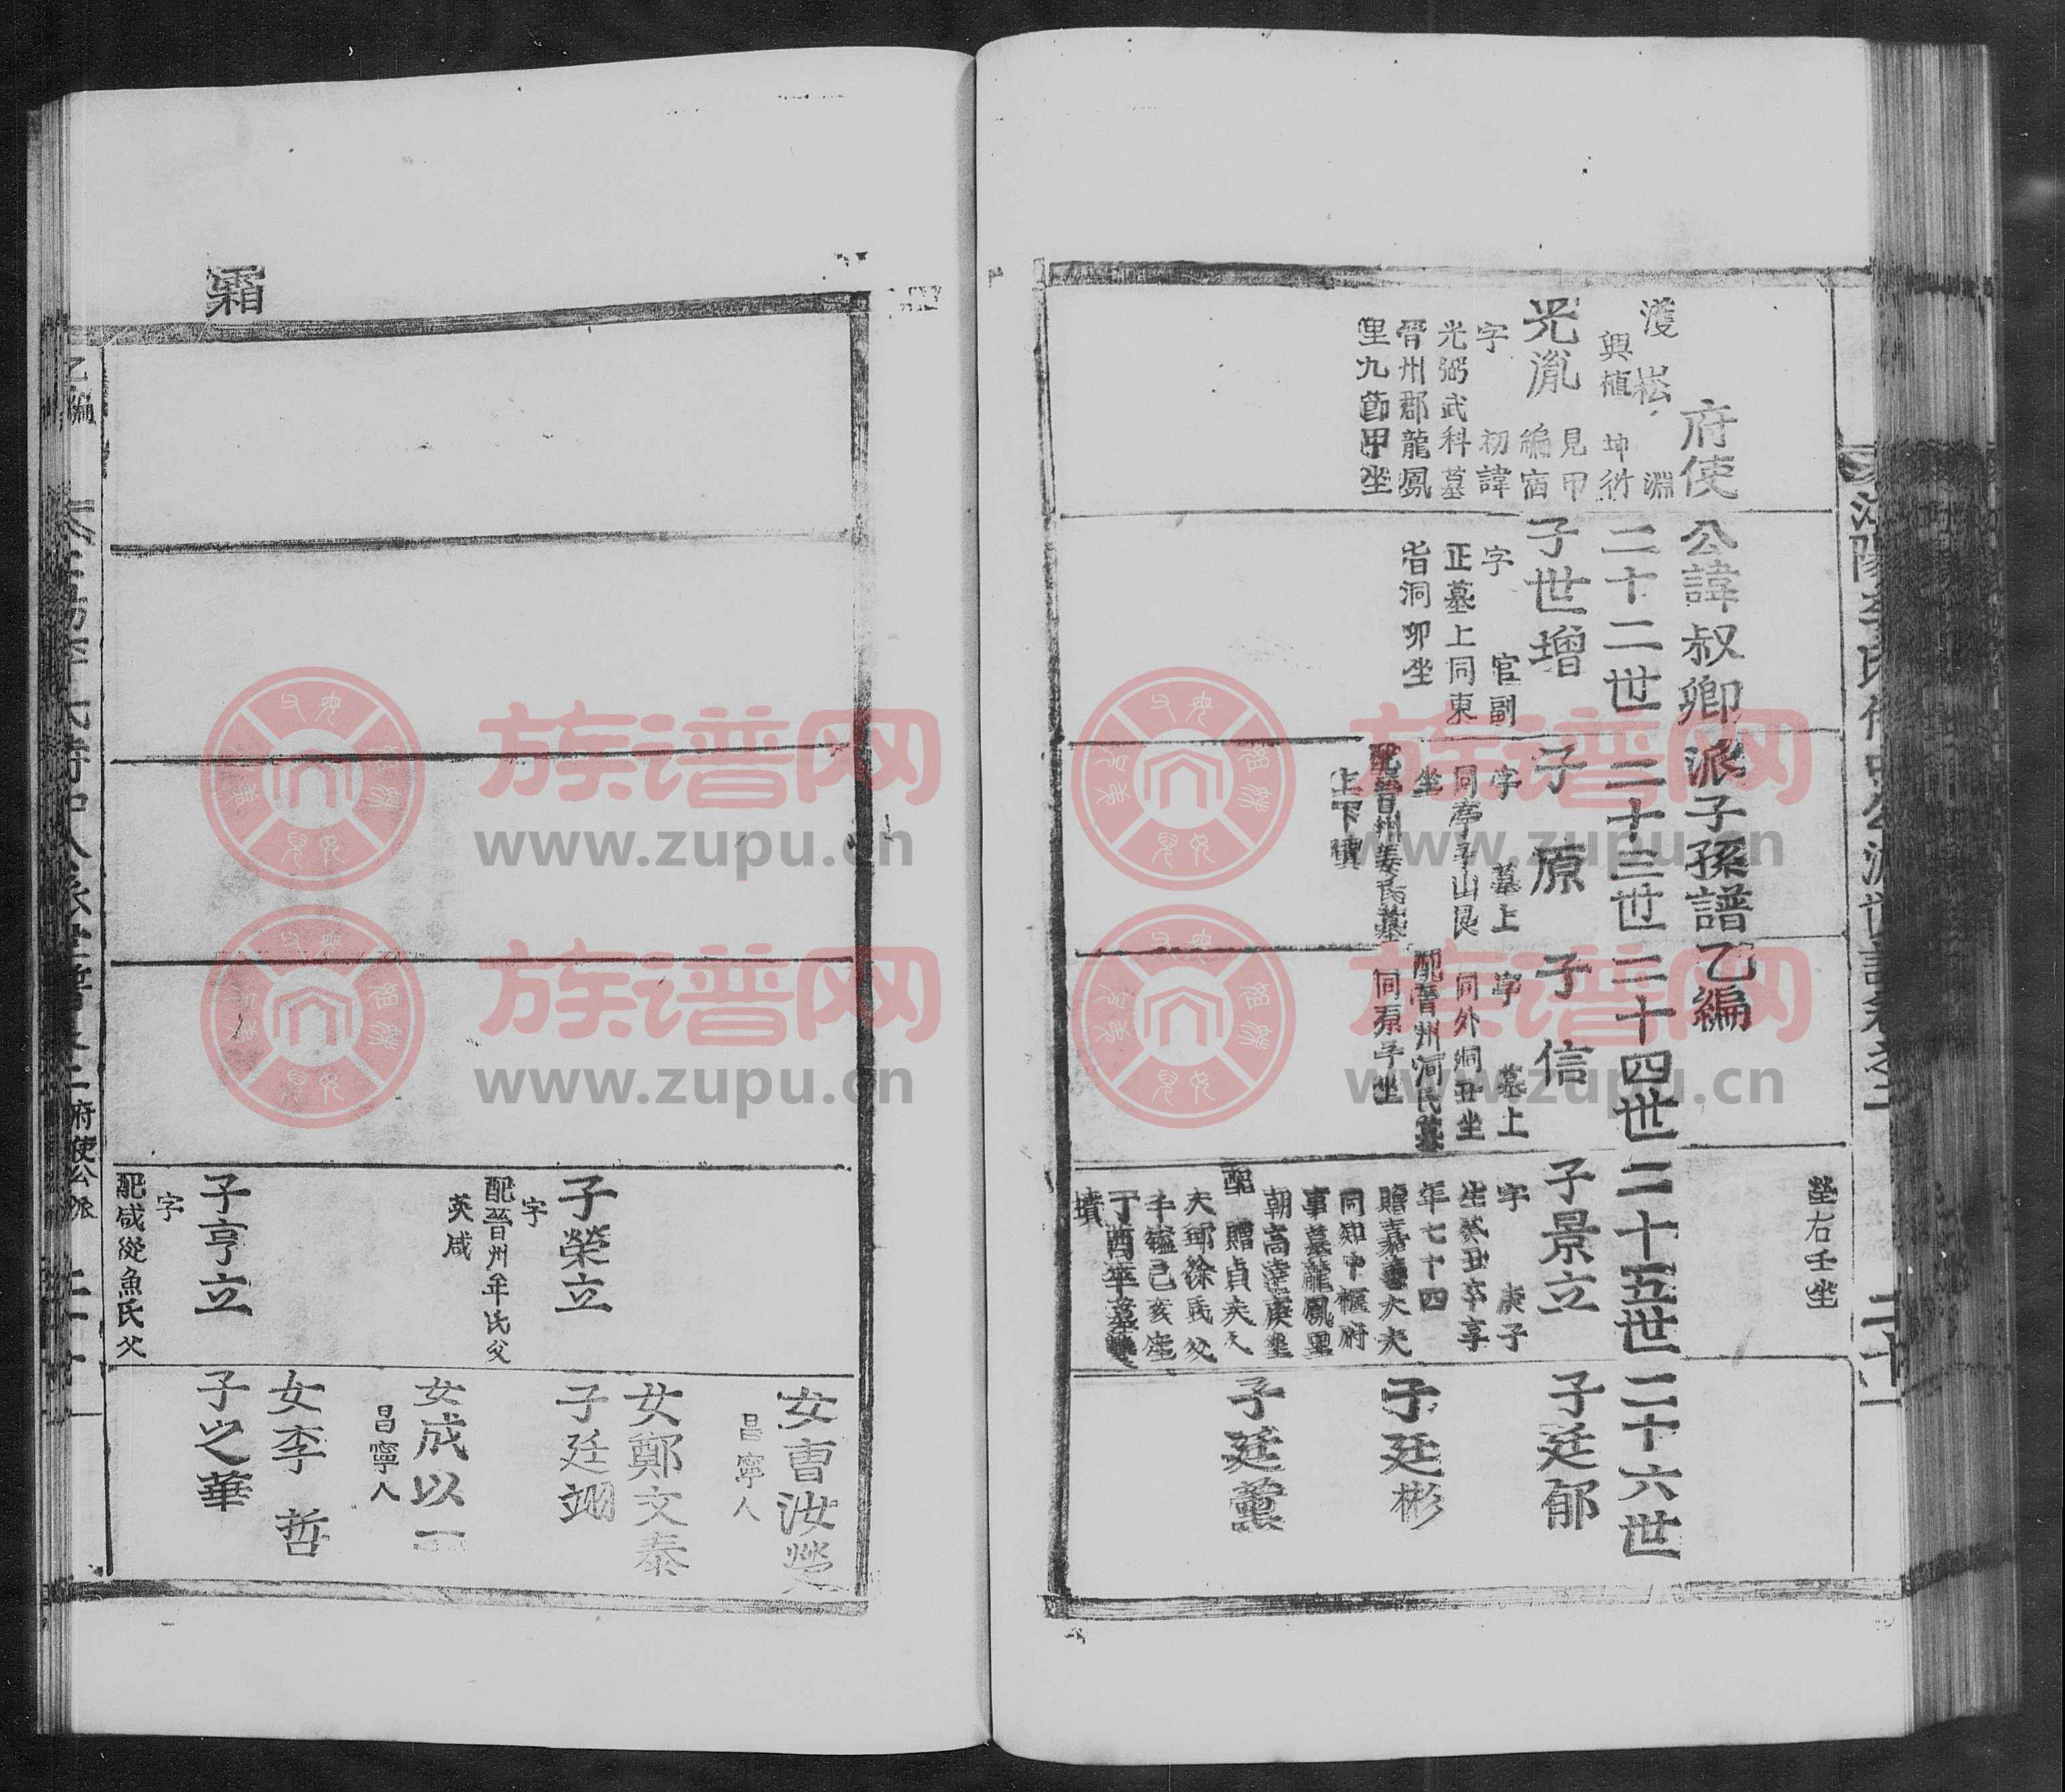 塋右壬坐
府使公諱叔卿派子孫譜乙編
濩 崧 淵
興植 坤衍
二十二世
二十三世
二十四世
二十五世
二十六世
光胤
見甲
編宿
字 初諱
光弼武科墓
晋州郡龍鳳
里九節甲坐
子世增
字 官副
正墓上同東
省洞卯坐
子原
字 墓上
同亭子山艮
坐
配晋州姜氏墓
上下墳
子信
字 墓上
同外洞丑坐
配晋州河氏墓
同原子坐
子景立
字 庚子
生癸丑卒享
年七十四
贈嘉善大夫
同知中樞府
事墓龍鳳里
配 贈貞夫人
丁酉卒墓雙
墳
子廷郁
子廷彬
子廷薰
霜
乙編
府使公派
女曺汝
昌寧人
女鄭文泰
子榮立
字
配晉州牟氏父
英咸
子廷翊
女成以一
昌寧人
女李哲
子亨立
字
配咸從魚氏父
子之華
族谱网
www.zupu.cn
族谱网
www.zupu.cn
族谱网
www.zupu.cn
族谱网
www.zupu.cn